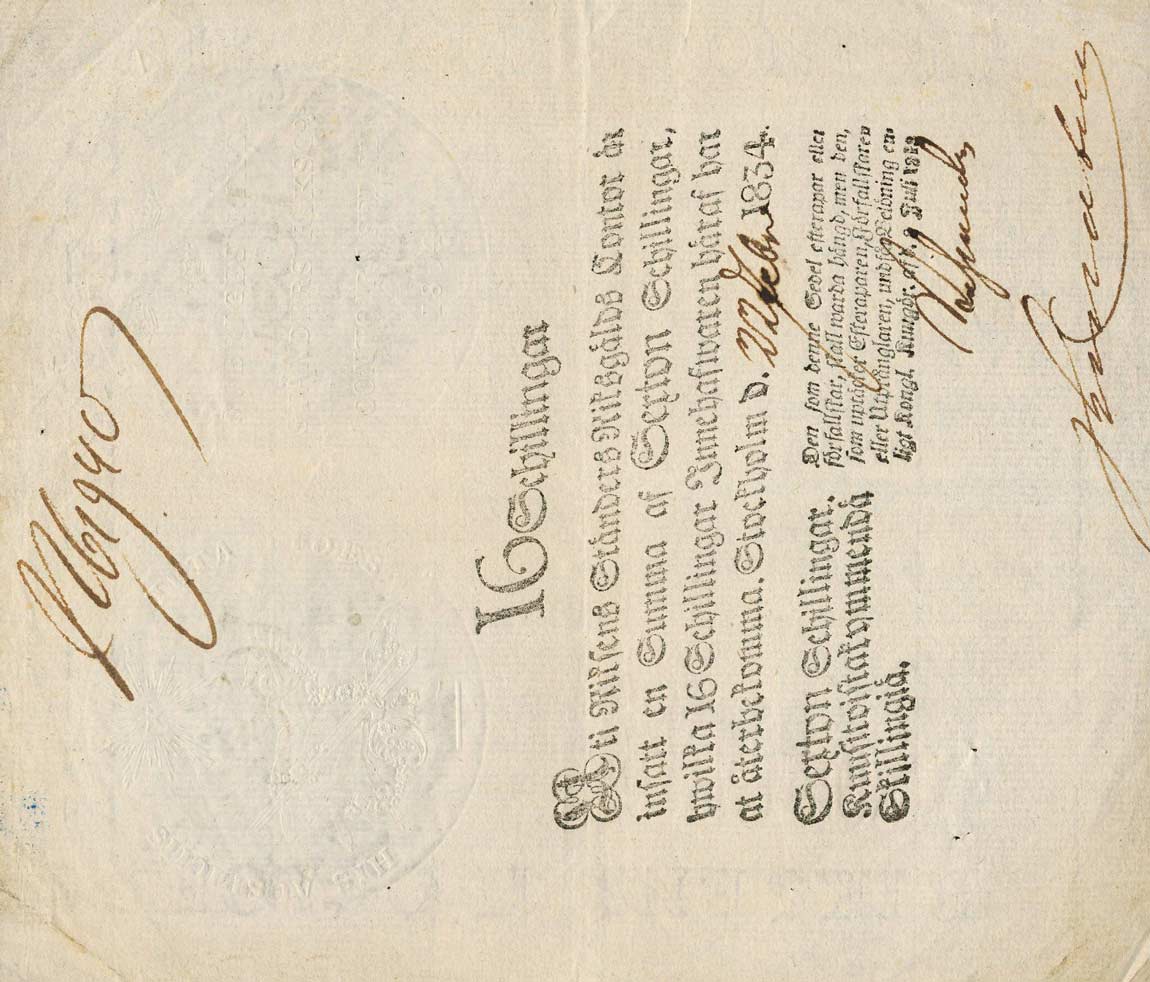 No 61940
16 Schillingar
Uti Riksens Ständers Riksgälds Contor är
insatt en Summa af Sexton Schillingar,
hwilka 16 Schillingar Innehafwaren häraf har
at återbekomma. Stockholm d. 1834.
Sexton Schillingar.
Kuusitoistakymmendä
Skillingiä.
Den som denne Sedel efterapar eller
förfalskar, skall warda hängd, men den,
som uptäcker Efteraparen, Förfalskaren
eller Utprånglaren, undfå Belöning en-
ligt Kongl. Kungör. af d. Juli
HIS